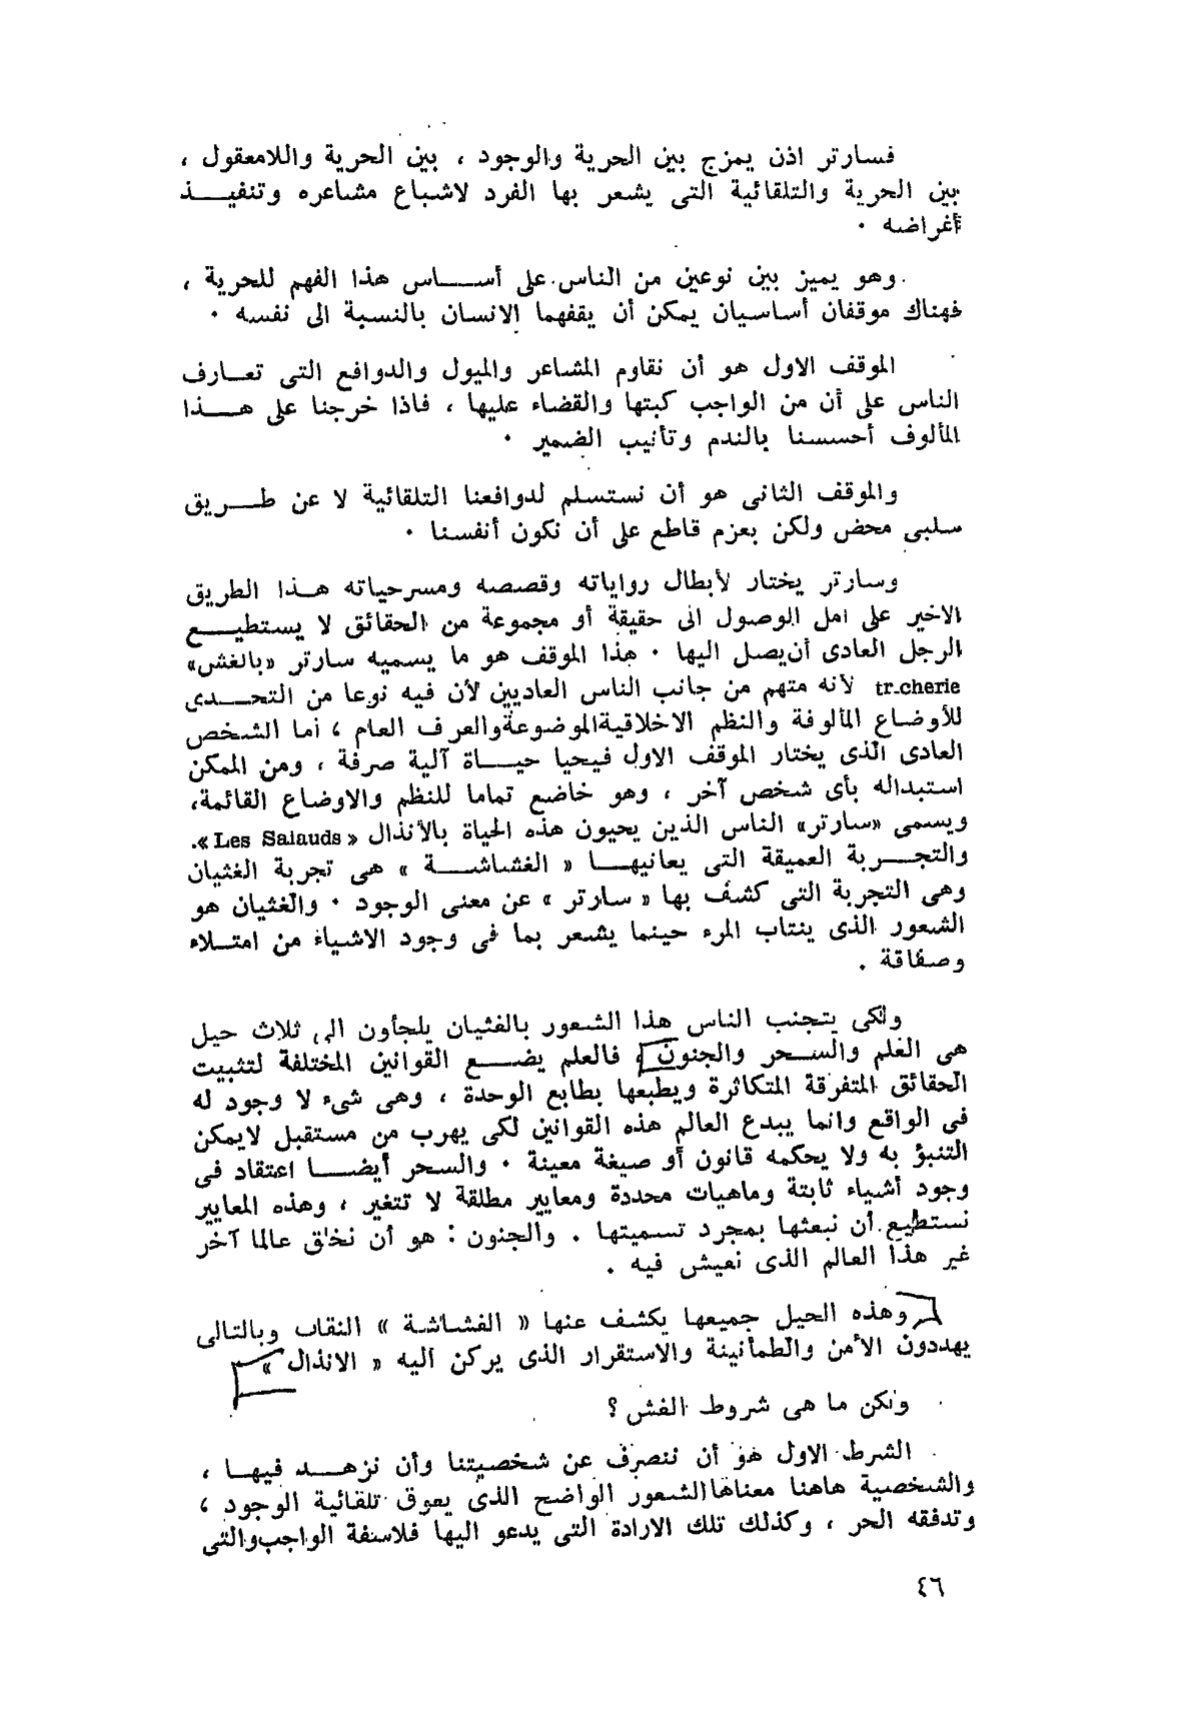 فسارتر اذن يمزج بين الحرية والوجود ، بين الحرية واللامعقول ،
بين الحرية والتلقائية التى يشعر بها الفرد لاشباع مشاعره وتنفيـــذ
أغراضه .
وهو يميز بين نوعين من الناس على أســـاس هذا الفهم للحرية ،
فهناك موقفان أساسيان يمكن أن يقفهما الانسان بالنسبة الى نفسه .
الموقف الاول هو أن نقاوم المشاعر والميول والدوافع التى تعـارف
الناس على أن من الواجب كبتها والقضاء عليها ، فاذا خرجنا على هـــذا
المألوف أحسسنا بالندم وتأنيب الضمير .
والموقف الثانى هو أن نستسلم لدوافعنا التلقائية لا عن طـــريق
سلبى محض ولكن بعزم قاطع على أن نكون أنفسنا .
وسارتر يختار لأبطال رواياته وقصصه ومسرحياته هـذا الطريق
الاخير على امل الوصول الى حقيقة أو مجموعة من الحقائق لا يستطيـــع
الرجل العادى أن يصل اليها . هذا الموقف هو ما يسميه سارتر «بالغش»
tr.cherie لأنه متهم من جانب الناس العاديين لأن فيه نوعا من التحـــدى
للأوضاع المألوفة والنظم الاخلاقية الموضوعة والعرف العام ، أما الشخص
العادى الذى يختار الموقف الاول فيحيا حيـــاة آلية صرفة ، ومن الممكن
استبداله بأى شخص آخر ، وهو خاضع تماما للنظم والاوضاع القائمة،
ويسمى «سارتر» الناس الذين يحيون هذه الحياة بالأنذال « Les Salauds ».
والتجـــربة العميقة التى يعانيهـــا « الغشاشـــة » هى تجربة الغثيان
وهى التجربة التى كشف بها « سارتر » عن معنى الوجود . والغثيان هو
الشعور الذى ينتاب المرء حينما يشعر بما فى وجود الاشياء من امتـلاء
وصفاقة .
ولكى يتجنب الناس هذا الشعور بالغثيان يلجأون الى ثلاث حيل
هى العلم والســحر والجنون ، فالعلم يضـــع القوانين المختلفة لتثبيت
الحقائق المتفرقة المتكاثرة ويطبعها بطابع الوحدة ، وهى شىء لا وجود له
فى الواقع وانما يبدع العالم هذه القوانين لكى يهرب من مستقبل لايمكن
التنبؤ به ولا يحكمه قانون أو صيغة معينة . والسحر أيضـــا اعتقاد فى
وجود أشياء ثابتة وماهيات محددة ومعايير مطلقة لا تتغير ، وهذه المعايير
نستطيع أن نبعثها بمجرد تسميتها . والجنون : هو أن نخلق عالما آخر
غير هذا العالم الذى نعيش فيه .
وهذه الحيل جميعها يكشف عنها « الغشاشة » النقاب وبالتالى
يهددون الأمن والطمأنينة والاستقرار الذى يركن اليه « الانذال »
ولكن ما هى شروط الغش ؟
الشرط الاول هو أن ننصرف عن شخصيتنا وأن نزهـــد فيهـا ،
والشخصية هاهنا معناها الشعور الواضح الذى يعوق تلقائية الوجود ،
وتدفقه الحر ، وكذلك تلك الارادة التى يدعو اليها فلاسفة الواجب والتى
٤٦